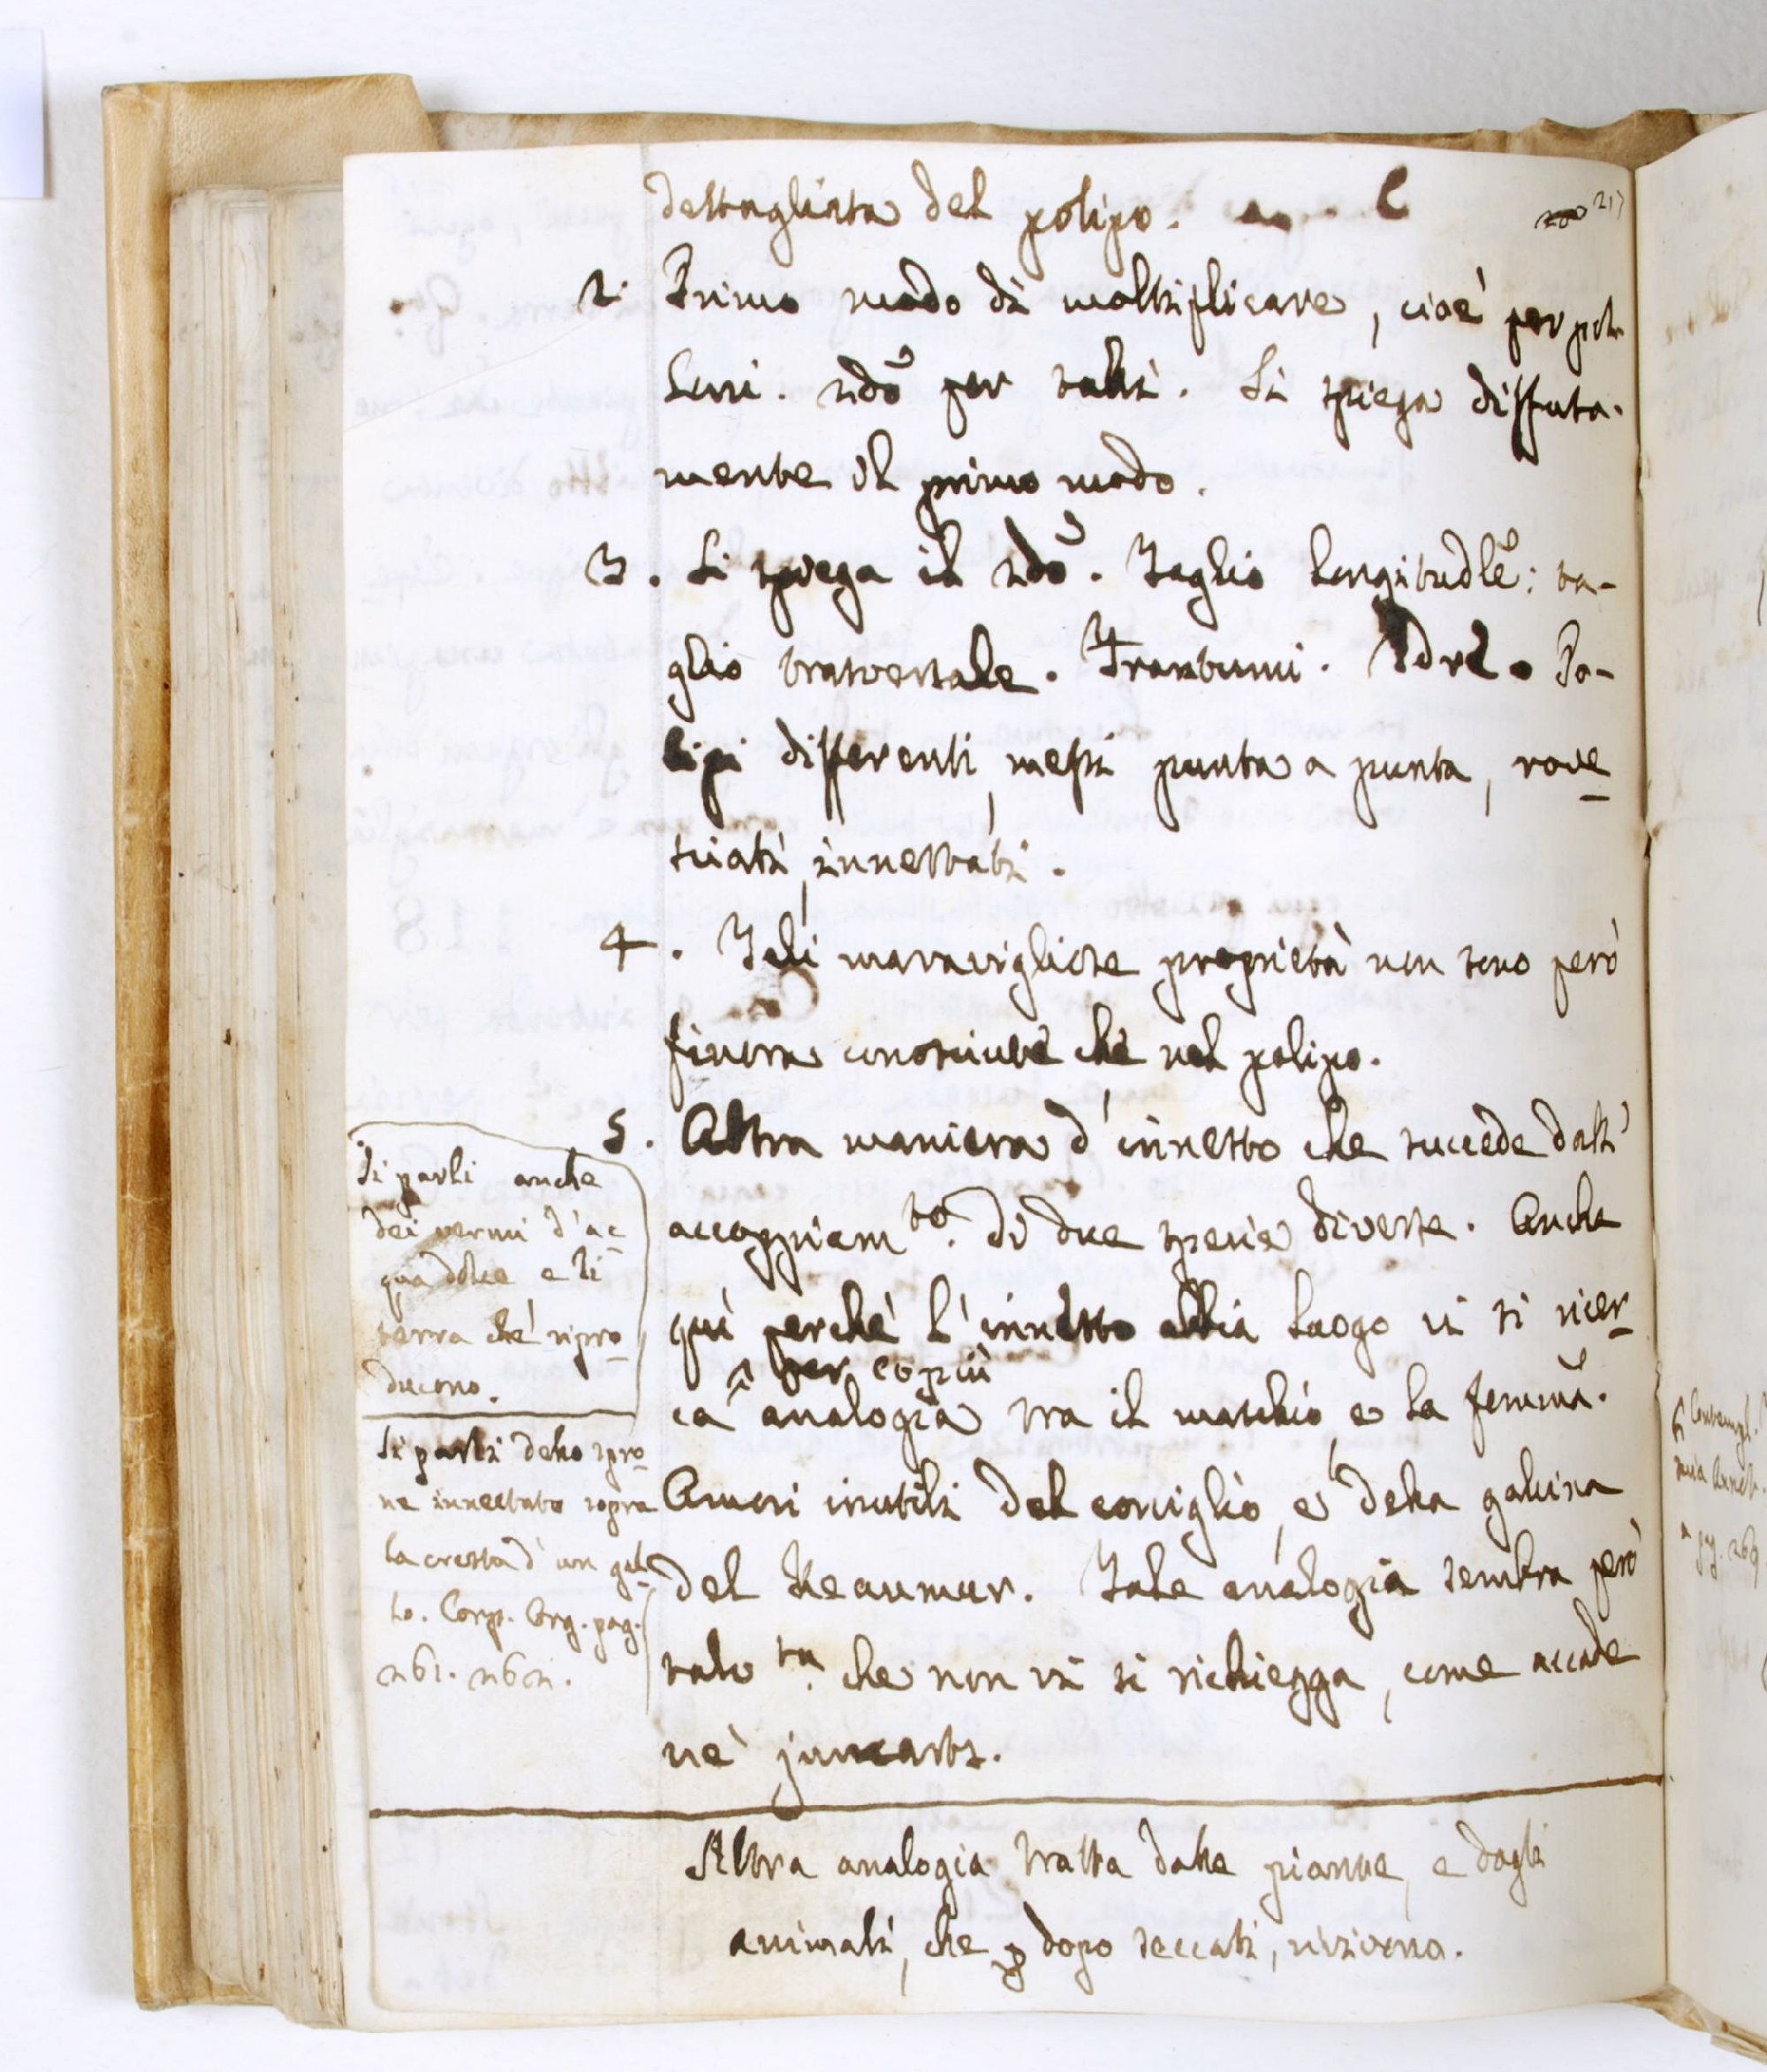 dettagliata del polipo.
217
2. Primo modo di moltiplicare, cioè per pol-
loni. 2do per talli. Si spiega diffusa-
mente il primo modo.
3. Si spiega il 2do. Taglio longitudle: ta-
glio trasversale. Frantumi. Idre. Po-
lipi differenti, messi punta a punta, rove
sciati, innestati.
4. Tali maravigliose proprietà non sono però
finora conosciute che nel polipo.
5. Altra maniera d'innesto che succede dall'
accoppiamto. di due specie diverse. Anche
quì perchè l'innesto abbia luogo vi si ricer
per lo più
ca analogia tra il maschio, e la femma.
Amori inutili del coniglio, e della gallina
del Reaumur. Tale analogia sembra però
talvta. che non vi si richiegga, come accade
ne' jumarti.
Si parli anche
dei vermi d'ac
qua dolce e di
terra che ripro
ducono.
Si parli dello spro
ne innestato sopra
la cresta d'un gal
lo. Corp. Org. pag.
261. 262.
Altra analogia tratta dalle piante, e dagli
animali, che dopo seccati, rivivono.
Contempl.
a pag. 269